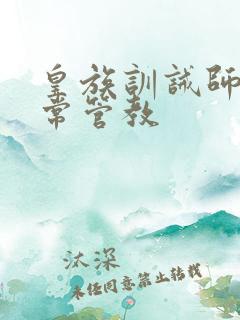 皇族訓誡師
常管教
汰深
未经同意禁止转载